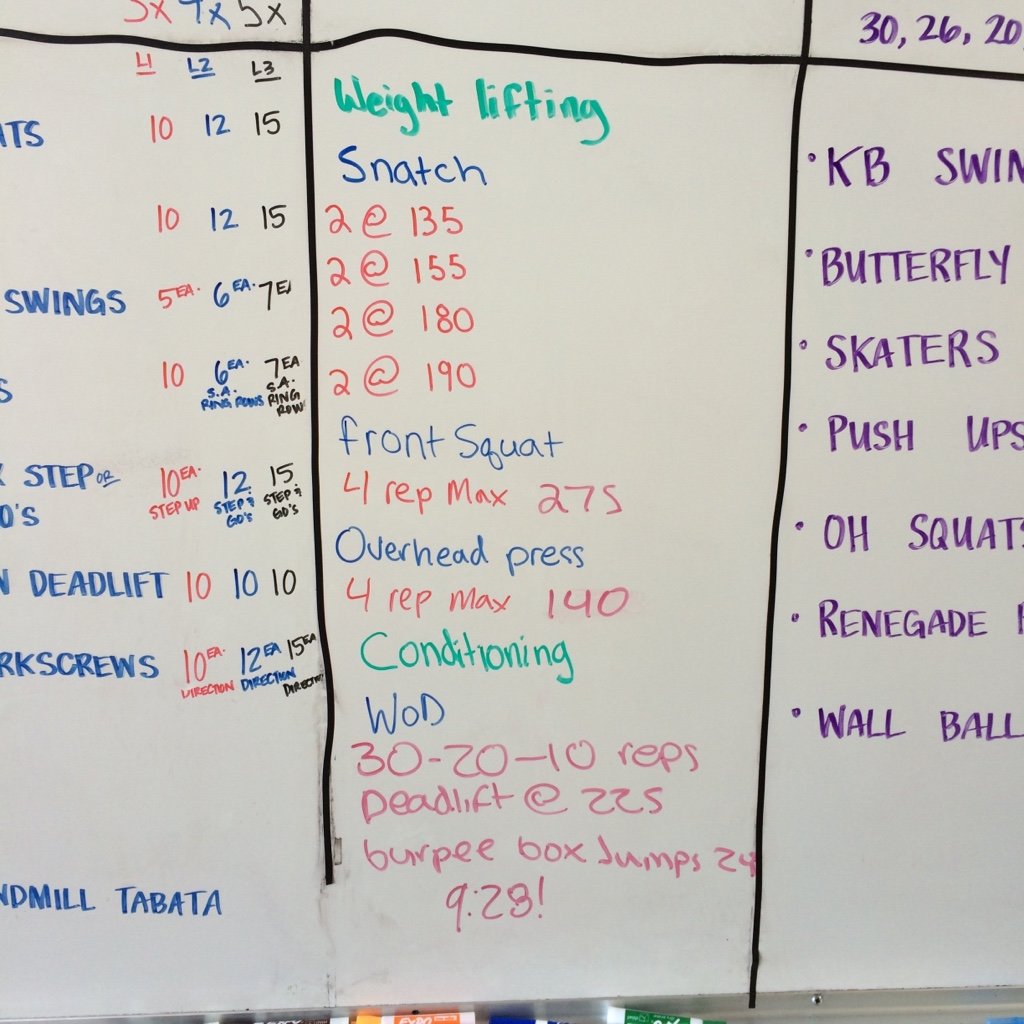 3x 4x 5x
L1 L2 L3
10 12 15
10 12 15
SWINGS 5 EA. 6 EA. 7 EA
10 6 EA. 7 EA
S.A. RING ROWS S.A. RING ROW
STEP OR 10 EA. 12 15
STEP UP STEP & GO'S STEP & GO'S
DEADLIFT 10 10 10
10 EA. 12 EA 15 EA
DIRECTION DIRECTION
TABATA
Weight lifting
Snatch
2 @ 135
2 @ 155
2 @ 180
2 @ 190
front Squat
4 rep Max 275
Overhead press
4 rep max 140
Conditioning
WOD
30-20-10 reps
Deadlift @ 225
burpee box Jumps 24
9:28!
30, 26, 20
• KB
• BUTTERFLY
• SKATERS
• PUSH UPS
• OH SQUATS
• RENEGADE
• WALL BALL
EXPO